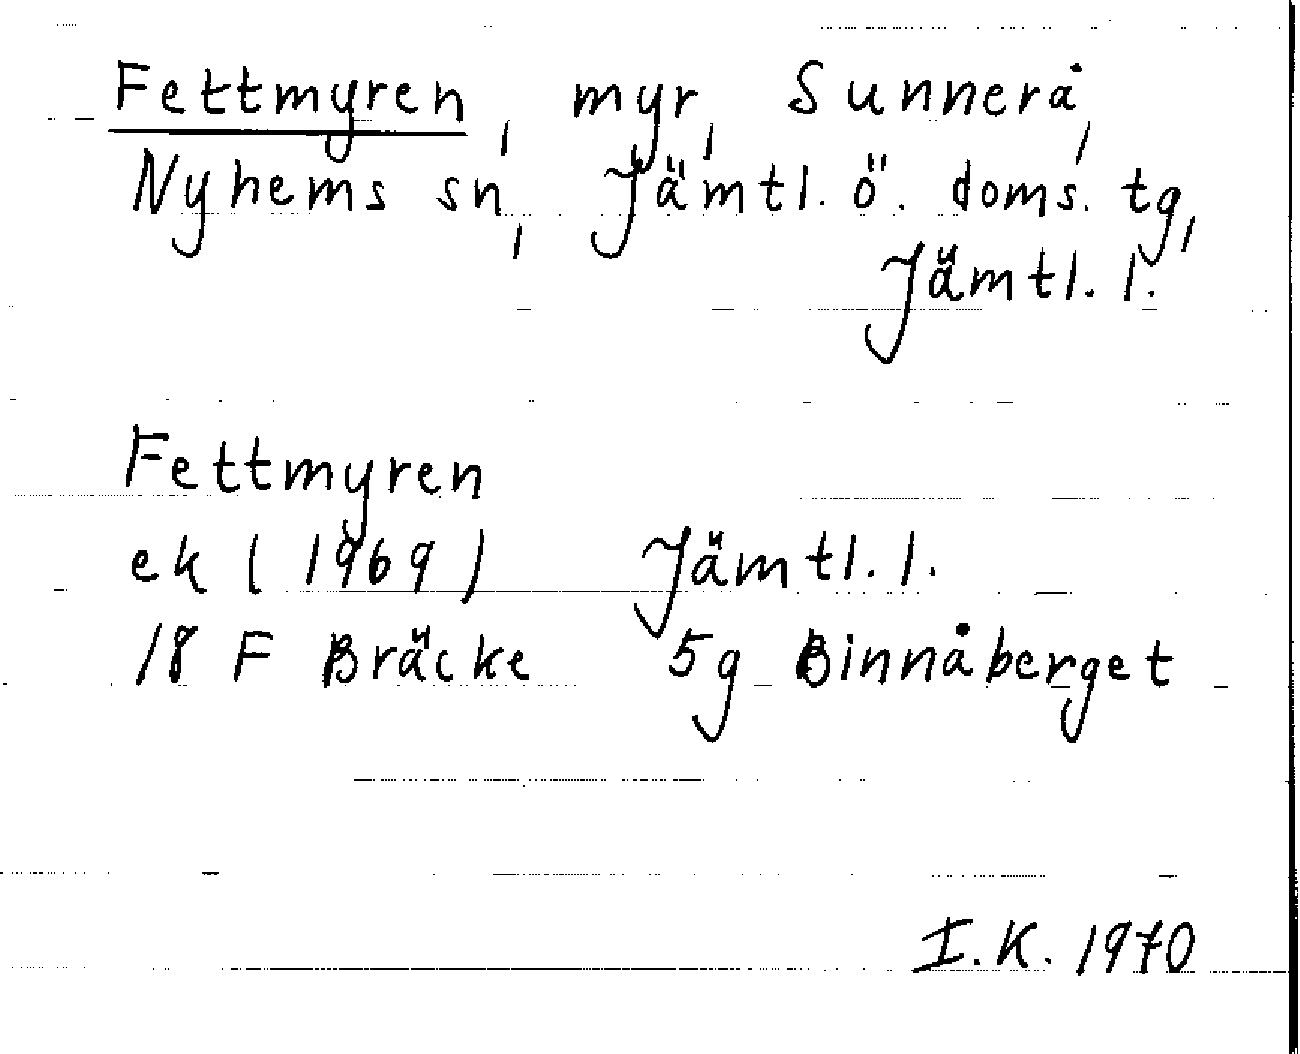 Fettmyren, myr, Sunnerå,
Nyhems sn, Jämtl. ö. doms. tg,
Jämtl. l.
Fettmyren
ek (1969) Jämtl. l.
18 F Bräcke 5g Binnåberget
I.K. 1970